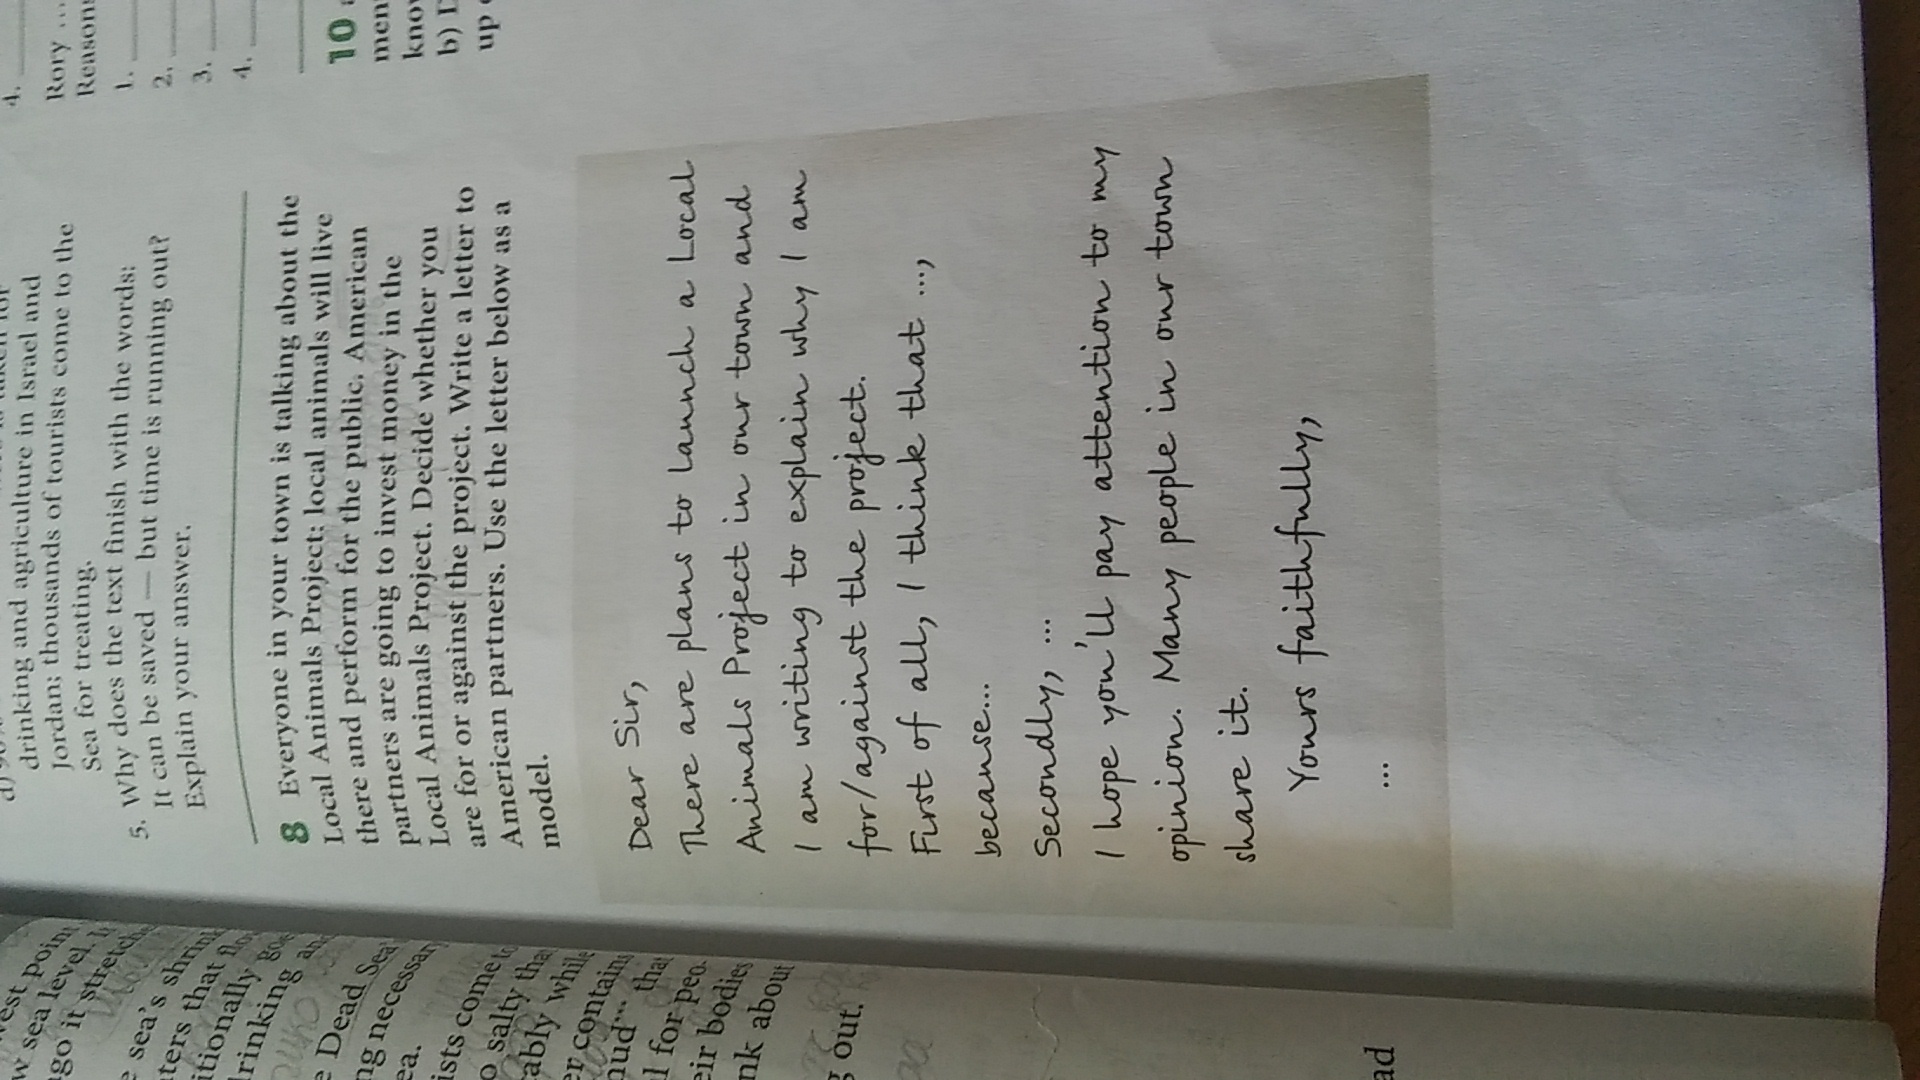 drinking and agriculture in Israel and
Jordan; thousands of tourists come to the
Sea for treating.
5. Why does the text finish with the words:
It can be saved — but time is running out?
Explain your answer.
8 Everyone in your town is talking about the
Local Animals Project: local animals will live
there and perform for the public. American
partners are going to invest money in the
Local Animals Project. Decide whether you
are for or against the project. Write a letter to
American partners. Use the letter below as a
model.
Dear Sir,
There are plans to launch a Local
Animals Project in our town and
I am writing to explain why I am
for/against the project.
First of all, I think that ...,
because...
Secondly, ...
I hope you'll pay attention to my
opinion. Many people in our town
share it.
Yours faithfully,
...
4.
Rory ...
Reasons
1.
2.
3.
4.
10
b)
up
west point
w sea level.
ago it stretch
sea's shrin
ters that
itionally
drinking
Dead Sea
ng necessary
ea.
ists come to
o salty tha
ably while
er contains
mud... tha
l for peo-
eir bodies
nk about
g out.
ad